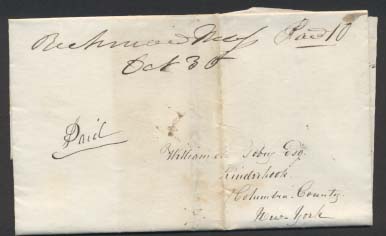 Richmond Mass Paid 10
Oct 30
Paid
William H. Tobey Esq.
Kinderhook
Columbia County
New York